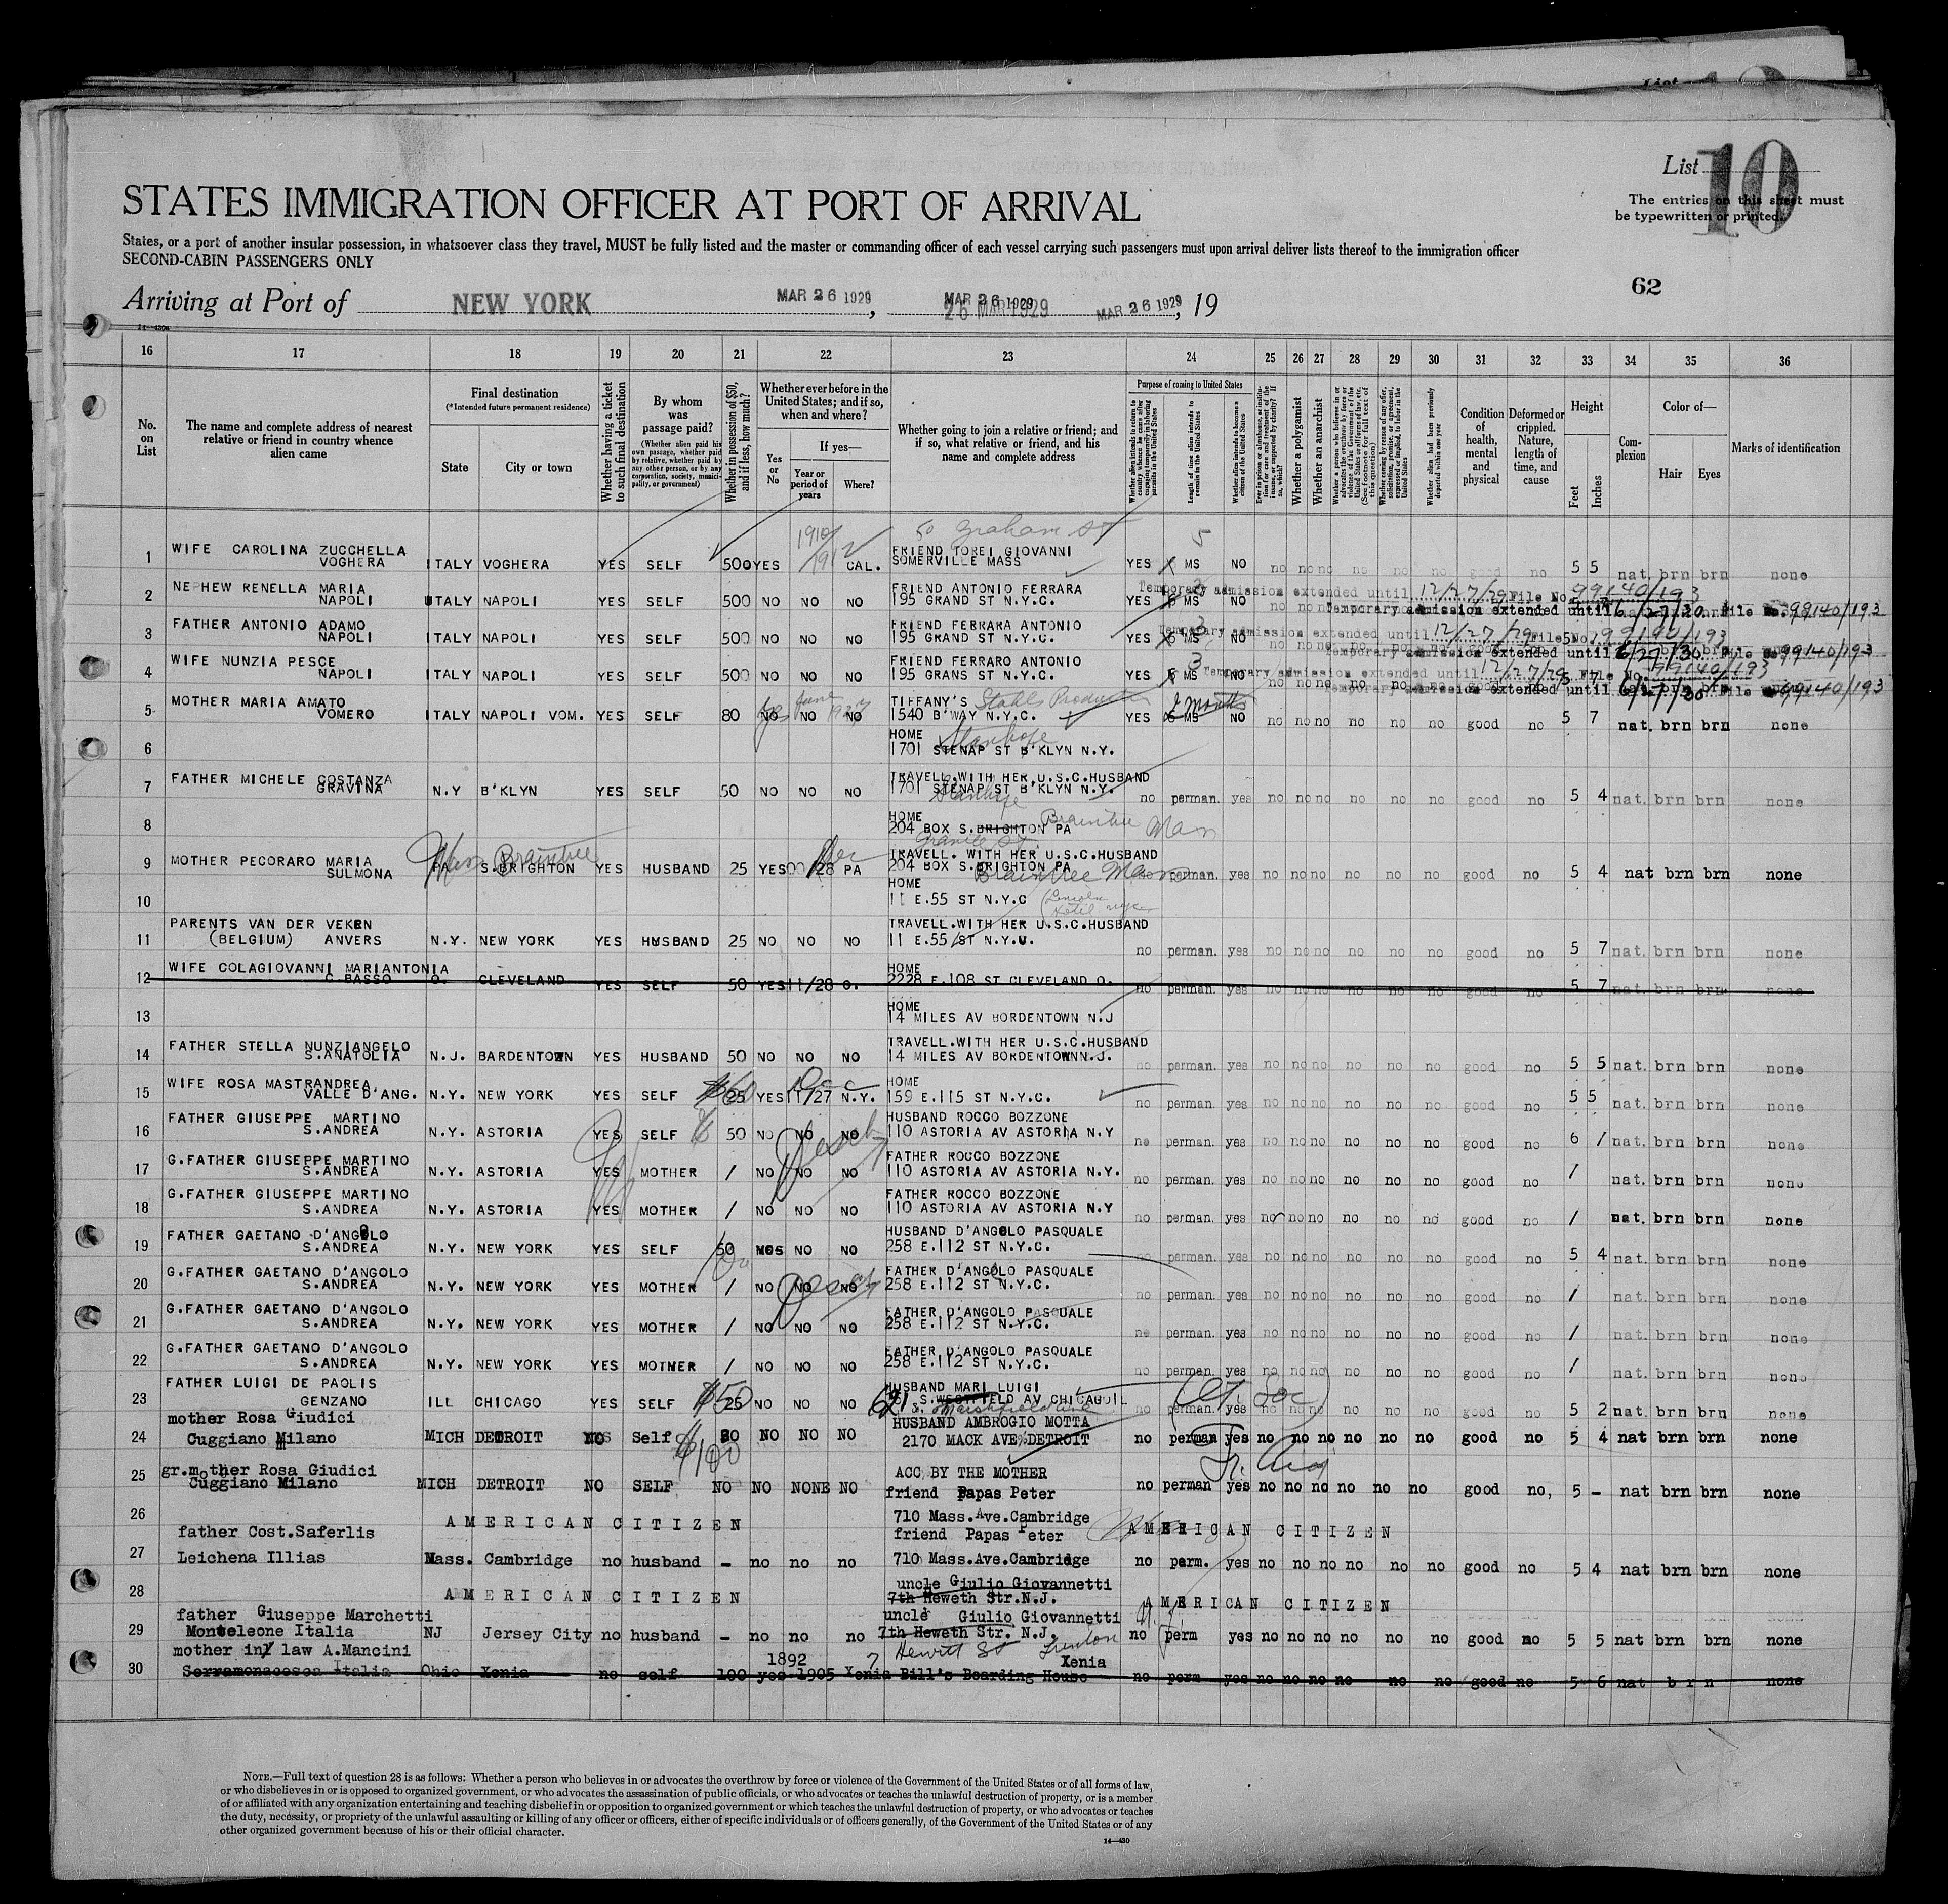 List 10
STATES IMMIGRATION OFFICER AT PORT OF ARRIVAL
The entries on this sheet must
be typewritten or printed.
States, or a port of another insular possession, in whatsoever class they travel, MUST be fully listed and the master or commanding officer of each vessel carrying such passengers must upon arrival deliver lists thereof to the immigration officer
SECOND-CABIN PASSENGERS ONLY
62
Arriving at Port of NEW YORK MAR 26 1929, MAR 26 1929 26 MAR 1929 MAR 26 1929, 19
16 17 18 19 20 21 22 23 24 25 26 27 28 29 30 31 32 33 34 35 36
No. on List
The name and complete address of nearest relative or friend in country whence alien came
Final destination
(*Intended future permanent residence)
State
City or town
Whether having a ticket to such final destination
By whom was passage paid?
(Whether alien paid his own passage, whether paid by relative, whether paid by any other person, or by any corporation, society, municipality, or government)
Whether in possession of $50, and if less, how much?
Whether ever before in the United States; and if so, when and where?
Yes or No
If yes—
Year or period of years
Where?
Whether going to join a relative or friend; and if so, what relative or friend, and his name and complete address
Purpose of coming to United States
Length of time alien intends to remain in the United States
Whether alien intends to become a citizen of the United States
Whether a polygamist
Whether an anarchist
Condition of health, mental and physical
Deformed or crippled. Nature, length of time, and cause
Height
Feet
Inches
Complexion
Color of—
Hair
Eyes
Marks of identification
50 Graham St
1 WIFE CAROLINA ZUCCHELLA VOGHERA ITALY VOGHERA YES SELF 500 YES 1910/1912 CAL. FRIEND TOREI GIOVANNI SOMERVILLE MASS YES 5 MS NO no no no no no no good no 5 5 nat. brn brn none
2 NEPHEW RENELLA MARIA NAPOLI ITALY NAPOLI YES SELF 500 NO NO NO FRIEND ANTONIO FERRARA 195 GRAND ST N.Y.C. YES MS NO Temporary admission extended until 12/27/29 File No. 99140/193
Temporary admission extended until 6/27/30 File No. 99140/193
3 FATHER ANTONIO ADAMO NAPOLI ITALY NAPOLI YES SELF 500 NO NO NO FRIEND FERRARA ANTONIO 195 GRAND ST N.Y.C. YES 3 MS NO Temporary admission extended until 12/27/29 File No. 99140/193
Temporary admission extended until 6/27/30. File No. 99140/193
4 WIFE NUNZIA PESCE NAPOLI ITALY NAPOLI YES SELF 500 NO NO NO FRIEND FERRARO ANTONIO 195 GRANS ST N.Y.C. YES 3 MS NO Temporary admission extended until 12/27/29 File No. 99140/193
Temporary admission extended until 6/27/30 File No. 99140/193
5 MOTHER MARIA AMATO VOMERO ITALY NAPOLI VOM. YES SELF 80 NO yes NO June 1927 NO TIFFANY'S Stahls 1540 B'WAY N.Y.C. YES 6 MS 2 months NO no no no no no no good no 5 7 nat. brn brn none
6 HOME 1701 STENAP ST B'KLYN N.Y. Stanhope
7 FATHER MICHELE COSTANZA GRAVINA N.Y B'KLYN YES SELF 50 NO NO NO TRAVELL.WITH HER U.S.C.HUSBAND 1701 STENAP ST B'KLYN N.Y. Stanhope no perman. yes no no no no no no good no 5 4 nat. brn brn none
8 HOME 204 BOX S.BRIGHTON PA Braintree Mass
Granite St.
9 MOTHER PECORARO MARIA SULMONA PA Mass S.BRIGHTON Braintree YES HUSBAND 25 YES 28 Dec PA TRAVELL. WITH HER U.S.C.HUSBAND 204 BOX S.BRIGHTON PA Braintree Mass no perman. yes no no no no no no good no 5 4 nat brn brn none
10 HOME 11 E.55 ST N.Y.C (Lincoln Hotel nyc
11 PARENTS VAN DER VEKEN (BELGIUM) ANVERS N.Y. NEW YORK YES HUSBAND 25 NO NO NO TRAVELL.WITH HER U.S.C.HUSBAND 11 E.55 ST N.Y.C. no perman. yes no no no no no no good no 5 7 nat brn brn none
12 WIFE COLAGIOVANNI MARIANTONIA C BASSO O. CLEVELAND YES SELF 50 YES 11/28 O. HOME 2228 E.108 ST CLEVELAND O. no perman. yes no no no no no no good no 5 7 nat. brn brn none
13 HOME 14 MILES AV BORDENTOWN N.J
14 FATHER STELLA NUNZIANGELO S.ANATOLIA N.J. BARDENTOWN YES HUSBAND 50 NO NO NO TRAVELL.WITH HER U.S.C.HUSBAND 14 MILES AV BORDENTOWN N.J. no perman. yes no no no no no no good no 5 5 nat. brn brn none
15 WIFE ROSA MASTRANDREA VALLE D'ANG. N.Y. NEW YORK YES SELF 25 $60 YES 11/27 Dec N.Y. HOME 159 E.115 ST N.Y.C. no perman. yes no no no no no no good no 5 5 nat. brn brn none
16 FATHER GIUSEPPE MARTINO S.ANDREA N.Y. ASTORIA YES SELF 50 NO NO NO HUSBAND ROCCO BOZZONE 110 ASTORIA AV ASTORIA N.Y no perman. yes no no no no no no good no 6 / nat. brn brn none
17 G.FATHER GIUSEPPE MARTINO S.ANDREA N.Y. ASTORIA YES MOTHER / NO NO NO FATHER ROCCO BOZZONE 110 ASTORIA AV ASTORIA N.Y. no perman. yes no no no no no no good no / nat. brn brn none
18 G.FATHER GIUSEPPE MARTINO S.ANDREA N.Y. ASTORIA YES MOTHER / NO NO NO FATHER ROCCO BOZZONE 110 ASTORIA AV ASTORIA N.Y no perman. yes no no no no no no good no / nat. brn brn none
19 FATHER GAETANO D'ANGOLO S.ANDREA N.Y. NEW YORK YES SELF 50 NO NO HUSBAND D'ANGOLO PASQUALE 258 E.112 ST N.Y.C. no perman. yes no no no no no no good no 5 4 nat. brn brn none
20 G.FATHER GAETANO D'ANGOLO S.ANDREA N.Y. NEW YORK YES MOTHER / NO NO NO FATHER D'ANGOLO PASQUALE 258 E.112 ST N.Y.C. no perman. yes no no no no no no good no / nat. brn brn none
21 G.FATHER GAETANO D'ANGOLO S.ANDREA N.Y. NEW YORK YES MOTHER / NO NO NO FATHER D'ANGOLO PASQUALE 258 E.112 ST N.Y.C. no perman. yes no no no no no no good no / nat. brn brn none
22 G.FATHER GAETANO D'ANGOLO S.ANDREA N.Y. NEW YORK YES MOTHER / NO NO NO FATHER D'ANGOLO PASQUALE 258 E.112 ST N.Y.C. no perman. yes no no no no no no good no / nat. brn brn none
23 FATHER LUIGI DE PAOLIS GENZANO ILL CHICAGO YES SELF 25 $50 NO NO NO HUSBAND MARI LUIGI 621 S.WESTFIELD AV CHICAGO IL S. Marshfield ave no perman. yes no no no no no no good no 5 2 nat. brn brn none
24 mother Rosa Giudici Cuggiano Milano MICH DETROIT NO Self $100 NO NO NO HUSBAND AMBROGIO MOTTA 2170 MACK AVE DETROIT no perman yes no no no no no no good no 5 4 nat brn brn none
25 gr.mother Rosa Giudici Cuggiano Milano MICH DETROIT NO SELF NO NO NONE NO ACC BY THE MOTHER no perman yes no no no no no no good no, 5 - nat brn brn none
26 AMERICAN CITIZEN friend Papas Peter 710 Mass.Ave.Cambridge AMERICAN CITIZEN
27 father Cost.Saferlis Leichena Illias Mass. Cambridge no husband - no no no friend Papas Peter 710 Mass.Ave.Cambridge no perm. yes no no no no no no good no 5 4 nat brn brn none
28 AMERICAN CITIZEN uncle Giulio Giovannetti 7th Heweth Str.N.J. AMERICAN CITIZEN
29 father Giuseppe Marchetti Monteleone Italia NJ Jersey City no husband - no no no uncle Giulio Giovannetti 7th Heweth Str. N.J. Hewitt St Trenton no perm yes no no no no no no good no 5 5 nat brn brn none
30 mother in law A.Mancini Serramonacesca Italia Ohio Xenia no self 100 yes 1892 1905 7 Xenia Bill's Boarding House Xenia no perm yes no no no no no no good no 5 6 nat brn none
NOTE.—Full text of question 28 is as follows: Whether a person who believes in or advocates the overthrow by force or violence of the Government of the United States or of all forms of law,
or who disbelieves in or is opposed to organized government, or who advocates the assassination of public officials, or who advocates or teaches the unlawful destruction of property, or is a member
of or affiliated with any organization entertaining and teaching disbelief in or opposition to organized government or which teaches the unlawful destruction of property, or who advocates or teaches
the duty, necessity, or propriety of the unlawful assaulting or killing of any officer or officers, either of specific individuals or of officers generally, of the Government of the United States or of any
other organized government because of his or their official character.
14—430